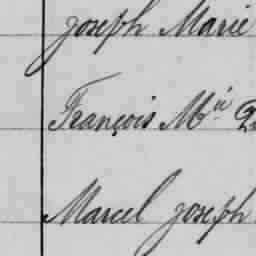 joseph Marie
François M.ie
Marcel joseph